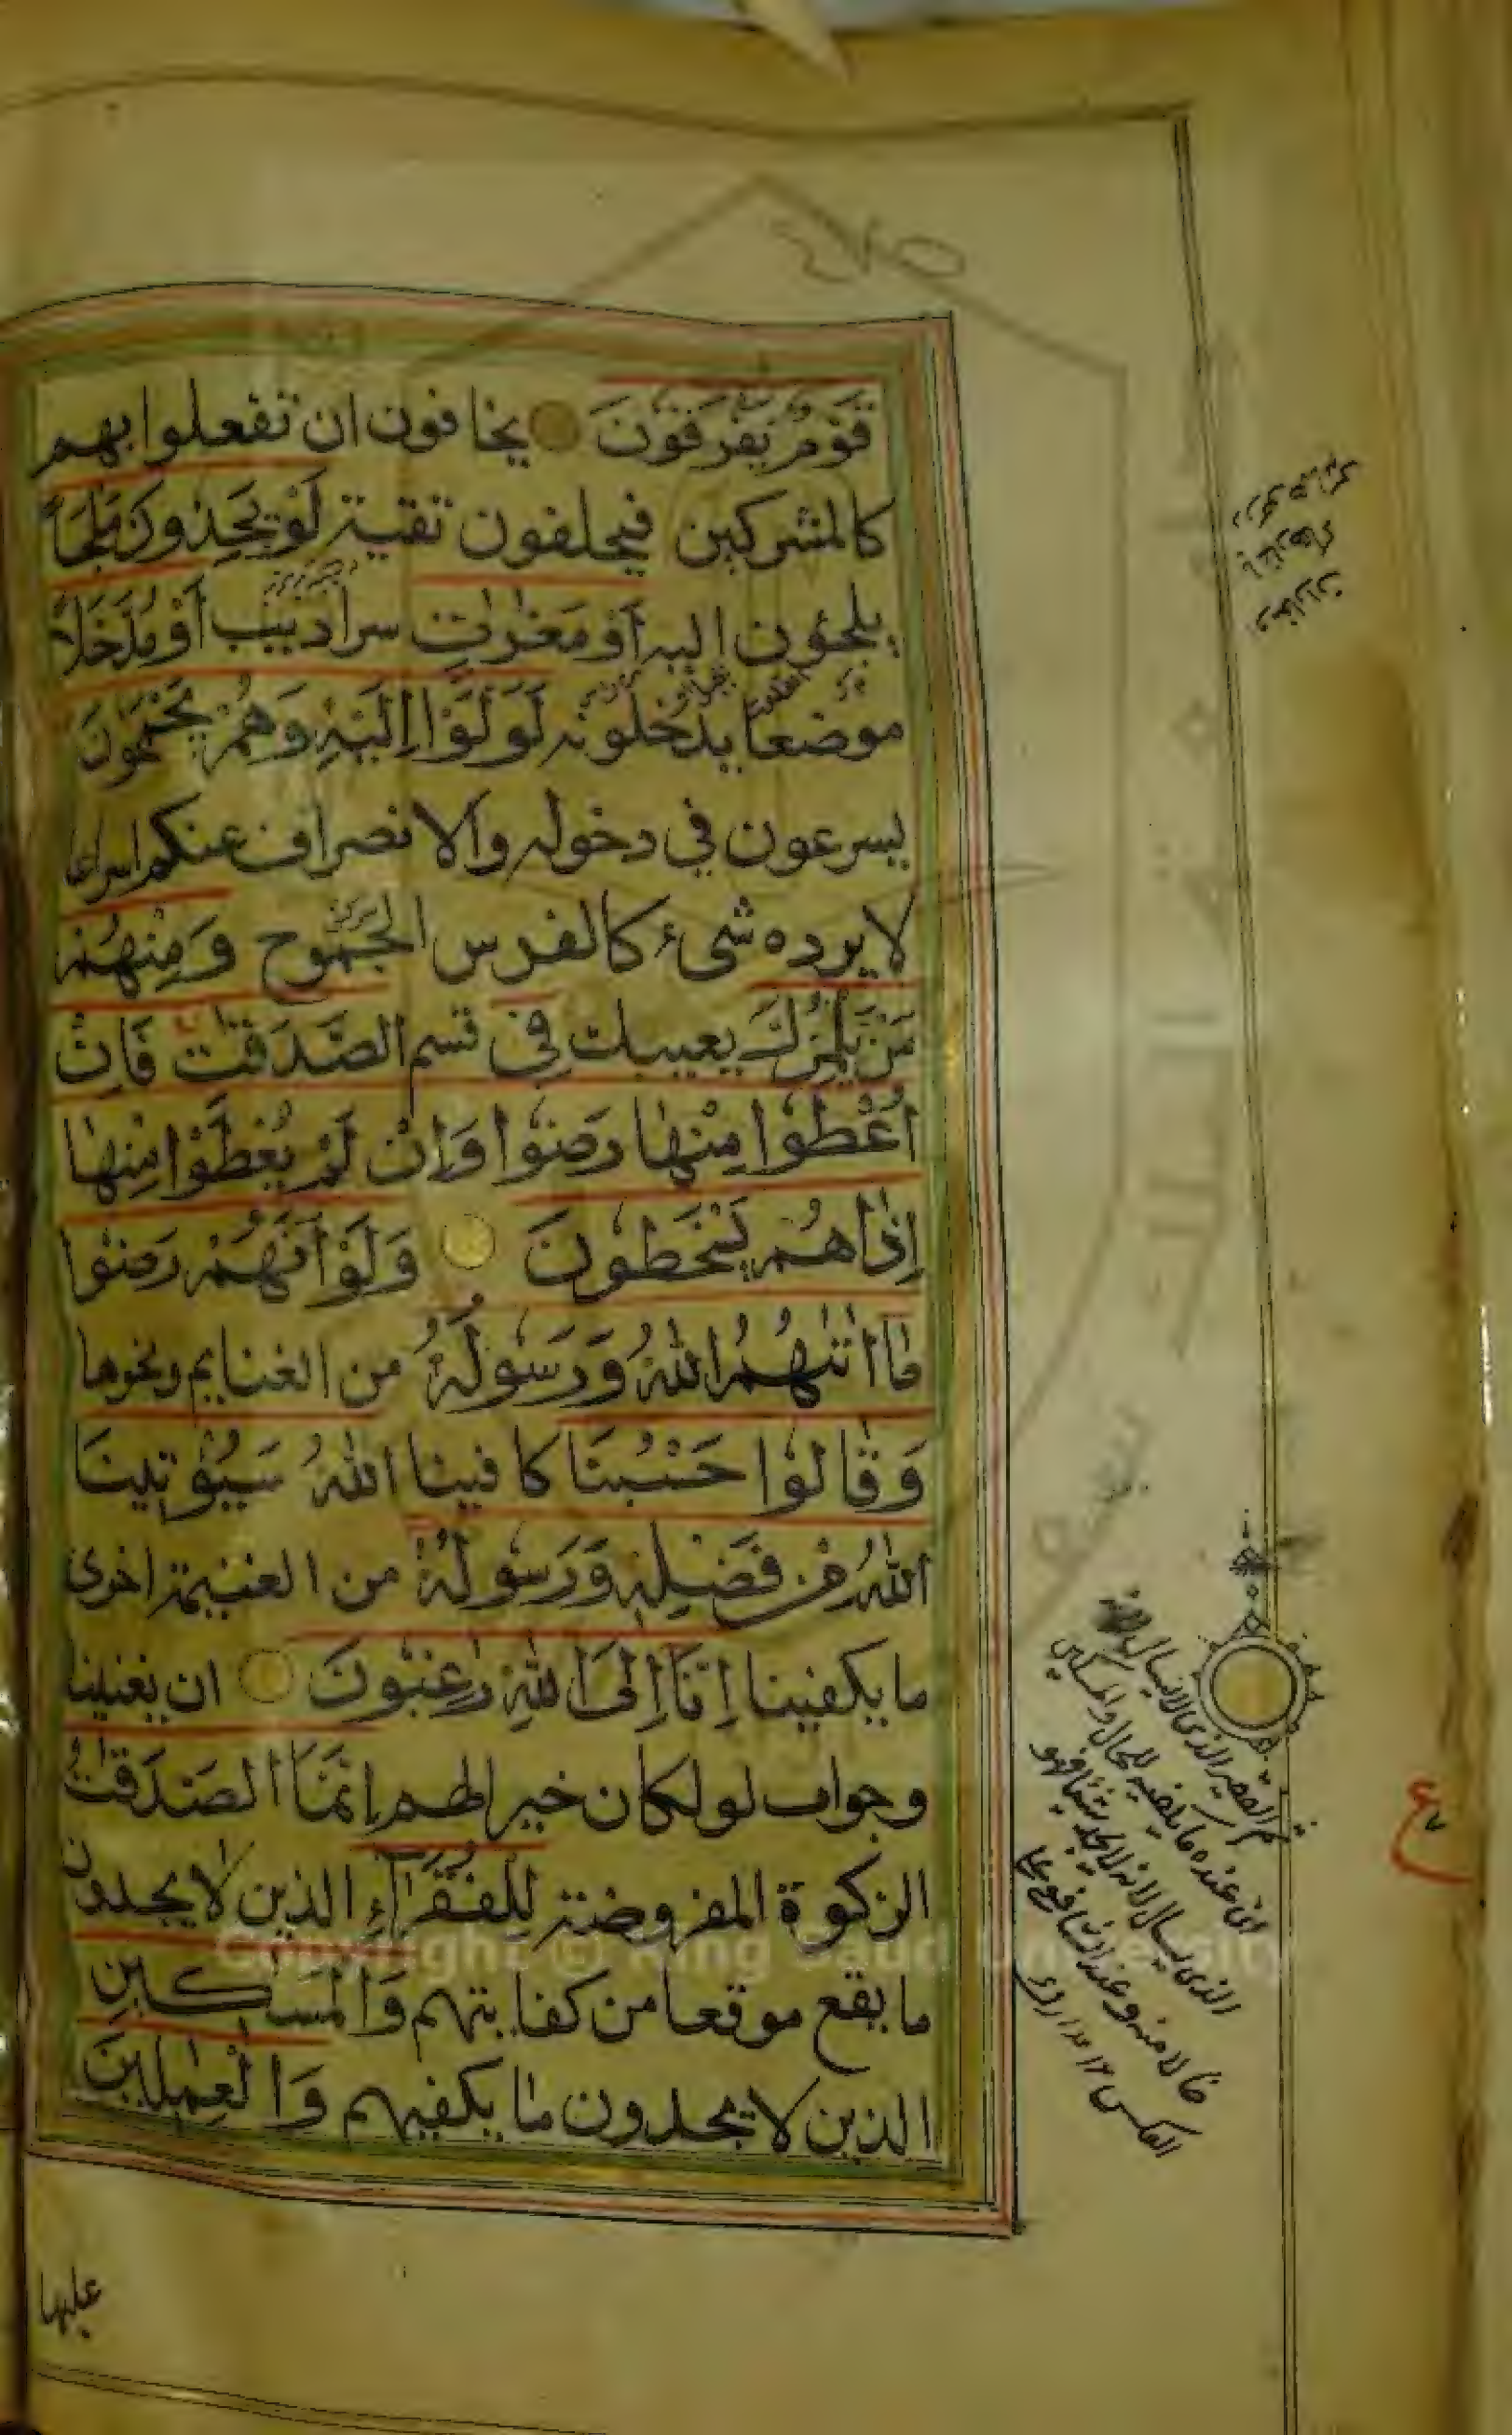 قَوْمٌ يَفْرَقُونَ يخافون ان تفعلوا بهم
كالمشركين فيحلفون تقية لَوْ يَجِدُونَ مَلْجَأً
يلجئون اليه أَوْ مَغٰرٰتٍ سراديب أَوْ مُدَّخَلاً
موضعا يدخلونه لَوَلَّوْا إِلَيْهِ وَهُمْ يَجْمَحُونَ
يسرعون في دخوله والانصراف عنكم اسراعا
لا يرده شيء كالفرس الجموح وَمِنْهُمْ
مَنْ يَلْمِزُكَ يعيبك فِي قسم الصَّدَقٰتِ فَاِنْ
اُعْطُوا مِنْهَا رَضُوا وَاِنْ لَمْ يُعْطَوْا مِنْهَا
اِذَا هُمْ يَسْخَطُونَ وَلَوْ اَنَّهُمْ رَضُوا
مَا اٰتٰىهُمُ اللّٰهُ وَرَسُولُهُ من الغنايم ونحوها
وَقَالُوا حَسْبُنَا كافينا اللّٰهُ سَيُؤْتِينَا
اللّٰهُ مِنْ فَضْلِهِ وَرَسُولُهُ من الغنيمة اخرى
ما يكفينا اِنَّا اِلَى اللّٰهِ رٰغِبُونَ ان يغنينا
وجواب لو لكان خيرا لهم اِنَّمَا الصَّدَقٰتُ
الزكوة المفروضة لِلْفُقَرَاءِ الذين لا يجدون
ما يقع موقعا من كفايتهم وَالْمَسٰكِينِ
الذين لا يجدون ما يكفيهم وَالْعٰمِلِينَ
عليها
الفقير الذي لا يسال
الذي يسال لانه لا يجد شيئا فهو
العكس
ع
Copyright © King Saud University